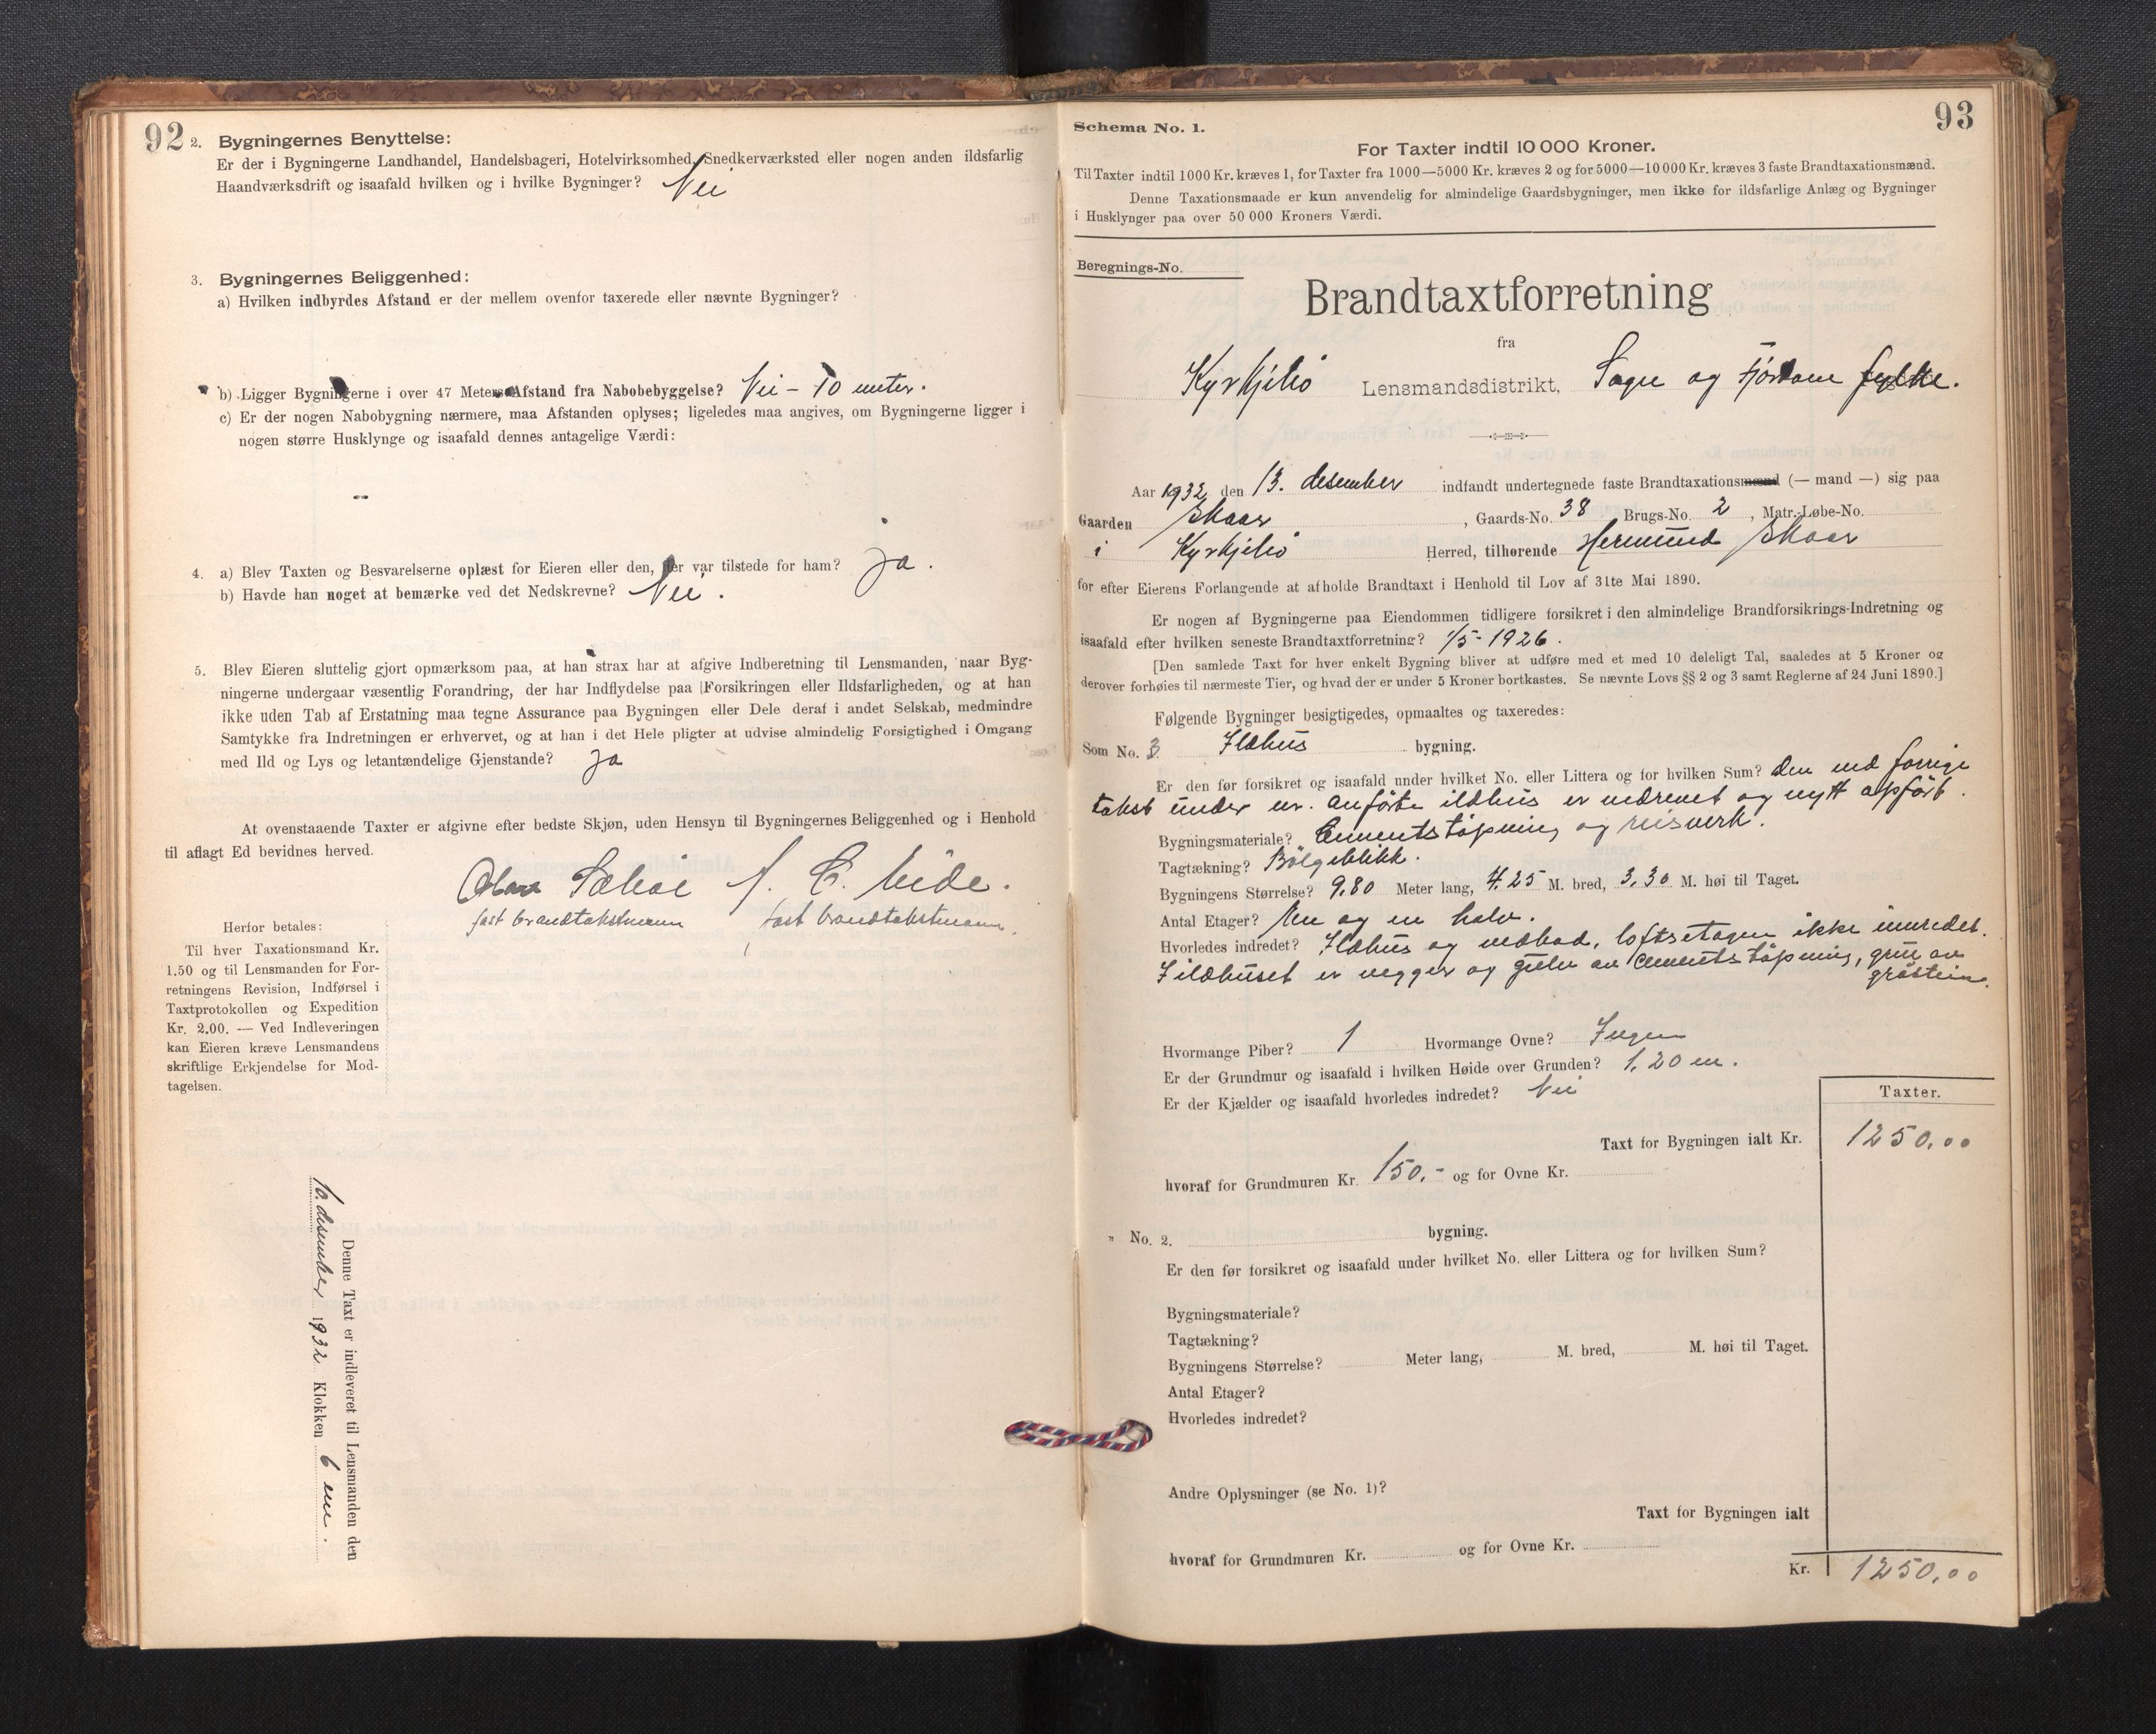 92
2. Bygningernes Benyttelse:
Er der i Bygningerne Landhandel, Handelsbageri, Hotelvirksomhed, Snedkerværksted eller nogen anden ildsfarlig
Haandværksdrift og isaafald hvilken og i hvilke Bygninger? Nei
3. Bygningernes Beliggenhed:
a) Hvilken indbyrdes Afstand er der mellem ovenfor taxerede eller nævnte Bygninger?
b) Ligger Bygningerne i over 47 Meters Afstand fra Nabobebyggelse? Nei - 10 meter.
c) Er der nogen Nabobygning nærmere, maa Afstanden oplyses; ligeledes maa angives, om Bygningerne ligger i
nogen større Husklynge og isaafald dennes antagelige Værdi:
4. a) Blev Taxten og Besvarelserne oplæst for Eieren eller den, der var tilstede for ham? Ja.
b) Havde han noget at bemærke ved det Nedskrevne? Nei.
5. Blev Eieren sluttelig gjort opmærksom paa, at han strax har at afgive Indberetning til Lensmanden, naar Byg-
ningerne undergaar væsentlig Forandring, der har Indflydelse paa Forsikringen eller Ildsfarligheden, og at han
ikke uden Tab af Erstatning maa tegne Assurance paa Bygningen eller Dele deraf i andet Selskab, medmindre
Samtykke fra Indretningen er erhvervet, og at han i det Hele pligter at udvise almindelig Forsigtighed i Omgang
med Ild og Lys og letantændelige Gjenstande? Ja
At ovenstaaende Taxter er afgivne efter bedste Skjøn, uden Hensyn til Bygningernes Beliggenhed og i Henhold
til aflagt Ed bevidnes herved.
E. Eide.
fast brandtakstmann fast brandtakstmann.
Herfor betales:
Til hver Taxationsmand Kr.
1.50 og til Lensmanden for For-
retningens Revision, Indførsel i
Taxtprotokollen og Expedition
Kr. 2.00. — Ved Indleveringen
kan Eieren kræve Lensmandens
skriftlige Erkjendelse for Mod-
tagelsen.
Denne Taxt er indleveret til Lensmanden den
16. desember 1932 Klokken 6 em.
93
Schema No. 1.
For Taxter indtil 10 000 Kroner.
Til Taxter indtil 1000 Kr. kræves 1, for Taxter fra 1000—5000 Kr. kræves 2 og for 5000—10 000 Kr. kræves 3 faste Brandtaxationsmænd.
Denne Taxationsmaade er kun anvendelig for almindelige Gaardsbygninger, men ikke for ildsfarlige Anlæg og Bygninger
i Husklynger paa over 50 000 Kroners Værdi.
Beregnings-No.
Brandtaxtforretning
fra
Kyrkjebö Lensmandsdistrikt, Sogn og Fjordane fylke.
Aar 1932, den 13. desember indfandt undertegnede faste Brandtaxationsmænd (— mand —) sig paa
Gaarden Skaar, Gaards-No. 38, Brugs-No. 2, Matr.-Løbe-No.
i Kyrkjebö Herred, tilhørende Hermund Skaar
for efter Eierens Forlangende at afholde Brandtaxt i Henhold til Lov af 31te Mai 1890.
Er nogen af Bygningerne paa Eiendommen tidligere forsikret i den almindelige Brandforsikrings-Indretning og
isaafald efter hvilken seneste Brandtaxtforretning? 1/5-1926.
[Den samlede Taxt for hver enkelt Bygning bliver at udføre med et med 10 deleligt Tal, saaledes at 5 Kroner og
derover forhøies til nærmeste Tier, og hvad der er under 5 Kroner bortkastes. Se nævnte Lovs §§ 2 og 3 samt Reglerne af 24 Juni 1890.]
Følgende Bygninger besigtigedes, opmaaltes og taxeredes:
Som No. 3 Ildhus bygning.
Er den før forsikret og isaafald under hvilket No. eller Littera og for hvilken Sum? den ved forrige
takst under nr. anförte ildhus er nedrevet og nytt opfört.
Bygningsmateriale? Cementstöpning og reisverk.
Tagtækning? Bölgeblikk.
Bygningens Størrelse? 9,80 Meter lang, 4,25 M. bred, 3,30 M. høi til Taget.
Antal Etager? En og en halv.
Hvorledes indredet? Ildhus og vedbod, loftsetagen ikke innredet.
I ildhuset er vegger og gulv av cementstöpning, grue av
gråstein.
Hvormange Piber? 1 Hvormange Ovne? Ingen
Er der Grundmur og isaafald i hvilken Høide over Grunden? 1,20 m.
Er der Kjælder og isaafald hvorledes indredet? Nei
Taxter.
Taxt for Bygningen ialt Kr. 1250,00
hvoraf for Grundmuren Kr. 150,- og for Ovne Kr.
" No. 2. bygning.
Er den før forsikret og isaafald under hvilket No. eller Littera og for hvilken Sum?
Bygningsmateriale?
Tagtækning?
Bygningens Størrelse? Meter lang, M. bred, M. høi til Taget.
Antal Etager?
Hvorledes indredet?
Andre Oplysninger (se No. 1)?
Taxt for Bygningen ialt
hvoraf for Grundmuren Kr. og for Ovne Kr.
Kr. 1250,00